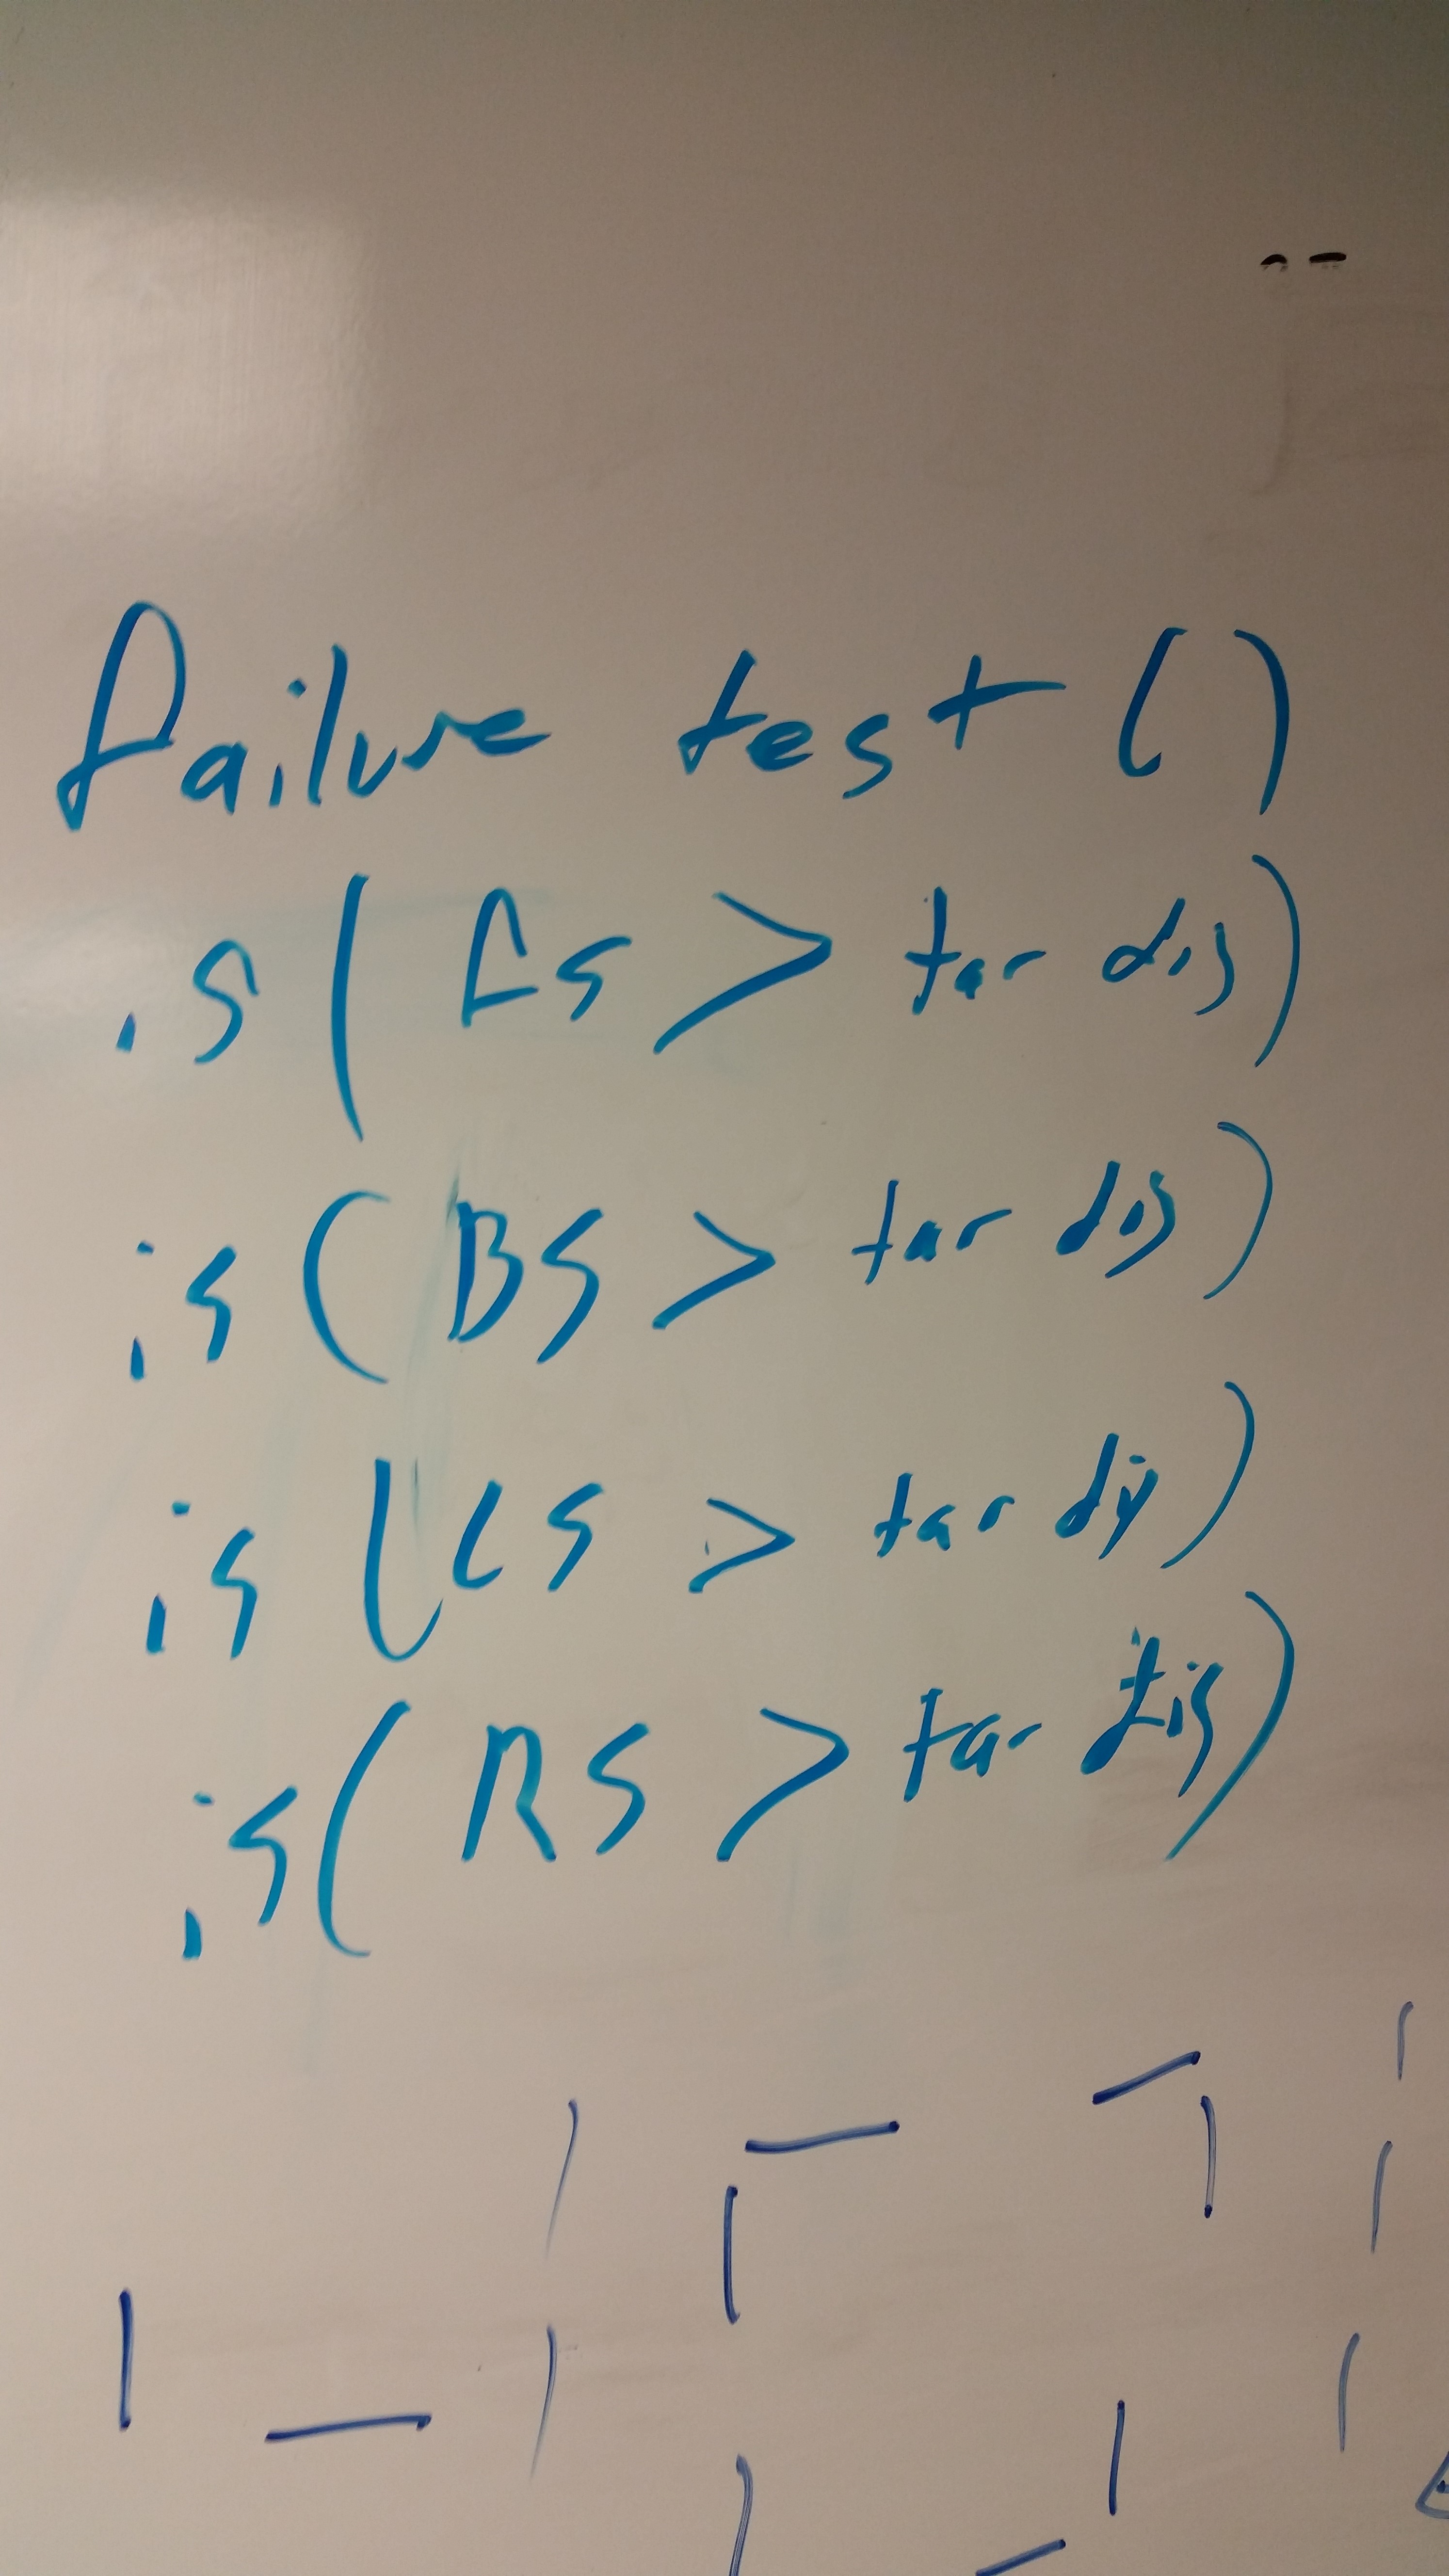 failure test ()
is ( FS > tar dis)
is ( BS > tar dis)
is ( LS > tar dis)
is ( RS > tar dis)